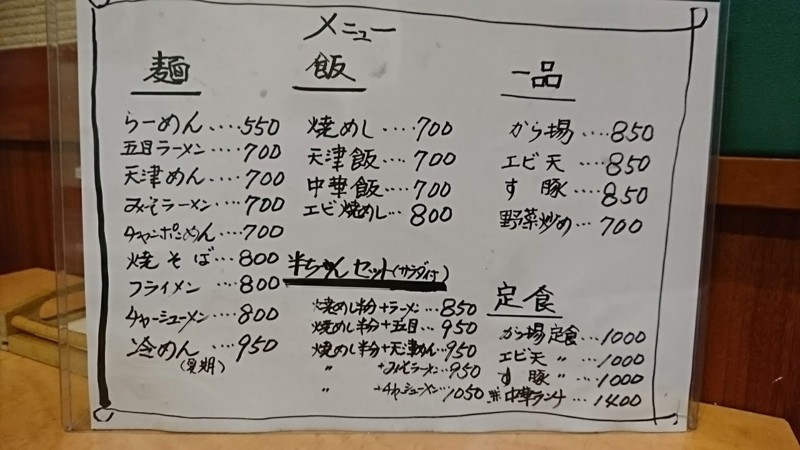 メニュー
麺
らーめん････550
五目ラーメン････700
天津めん････700
みそラーメン････700
チャンポンめん････700
焼そば････800
フライメン････800
チャーシューメン････800
冷めん････950
(夏期)
飯
焼めし････700
天津飯････700
中華飯････700
エビ焼めし････800
半ちゃんセット(サラダ付)
焼めし半分+ラーメン････850
焼めし半分+五目････950
焼めし半分+天津めん････950
〃 +みそラーメン････950
〃 +チャーシューメン････1050
一品
から揚････850
エビ天････850
す豚････850
野菜炒め････700
定食
から揚定食････1000
エビ天 〃････1000
す豚 〃････1000
中華ランチ････1400